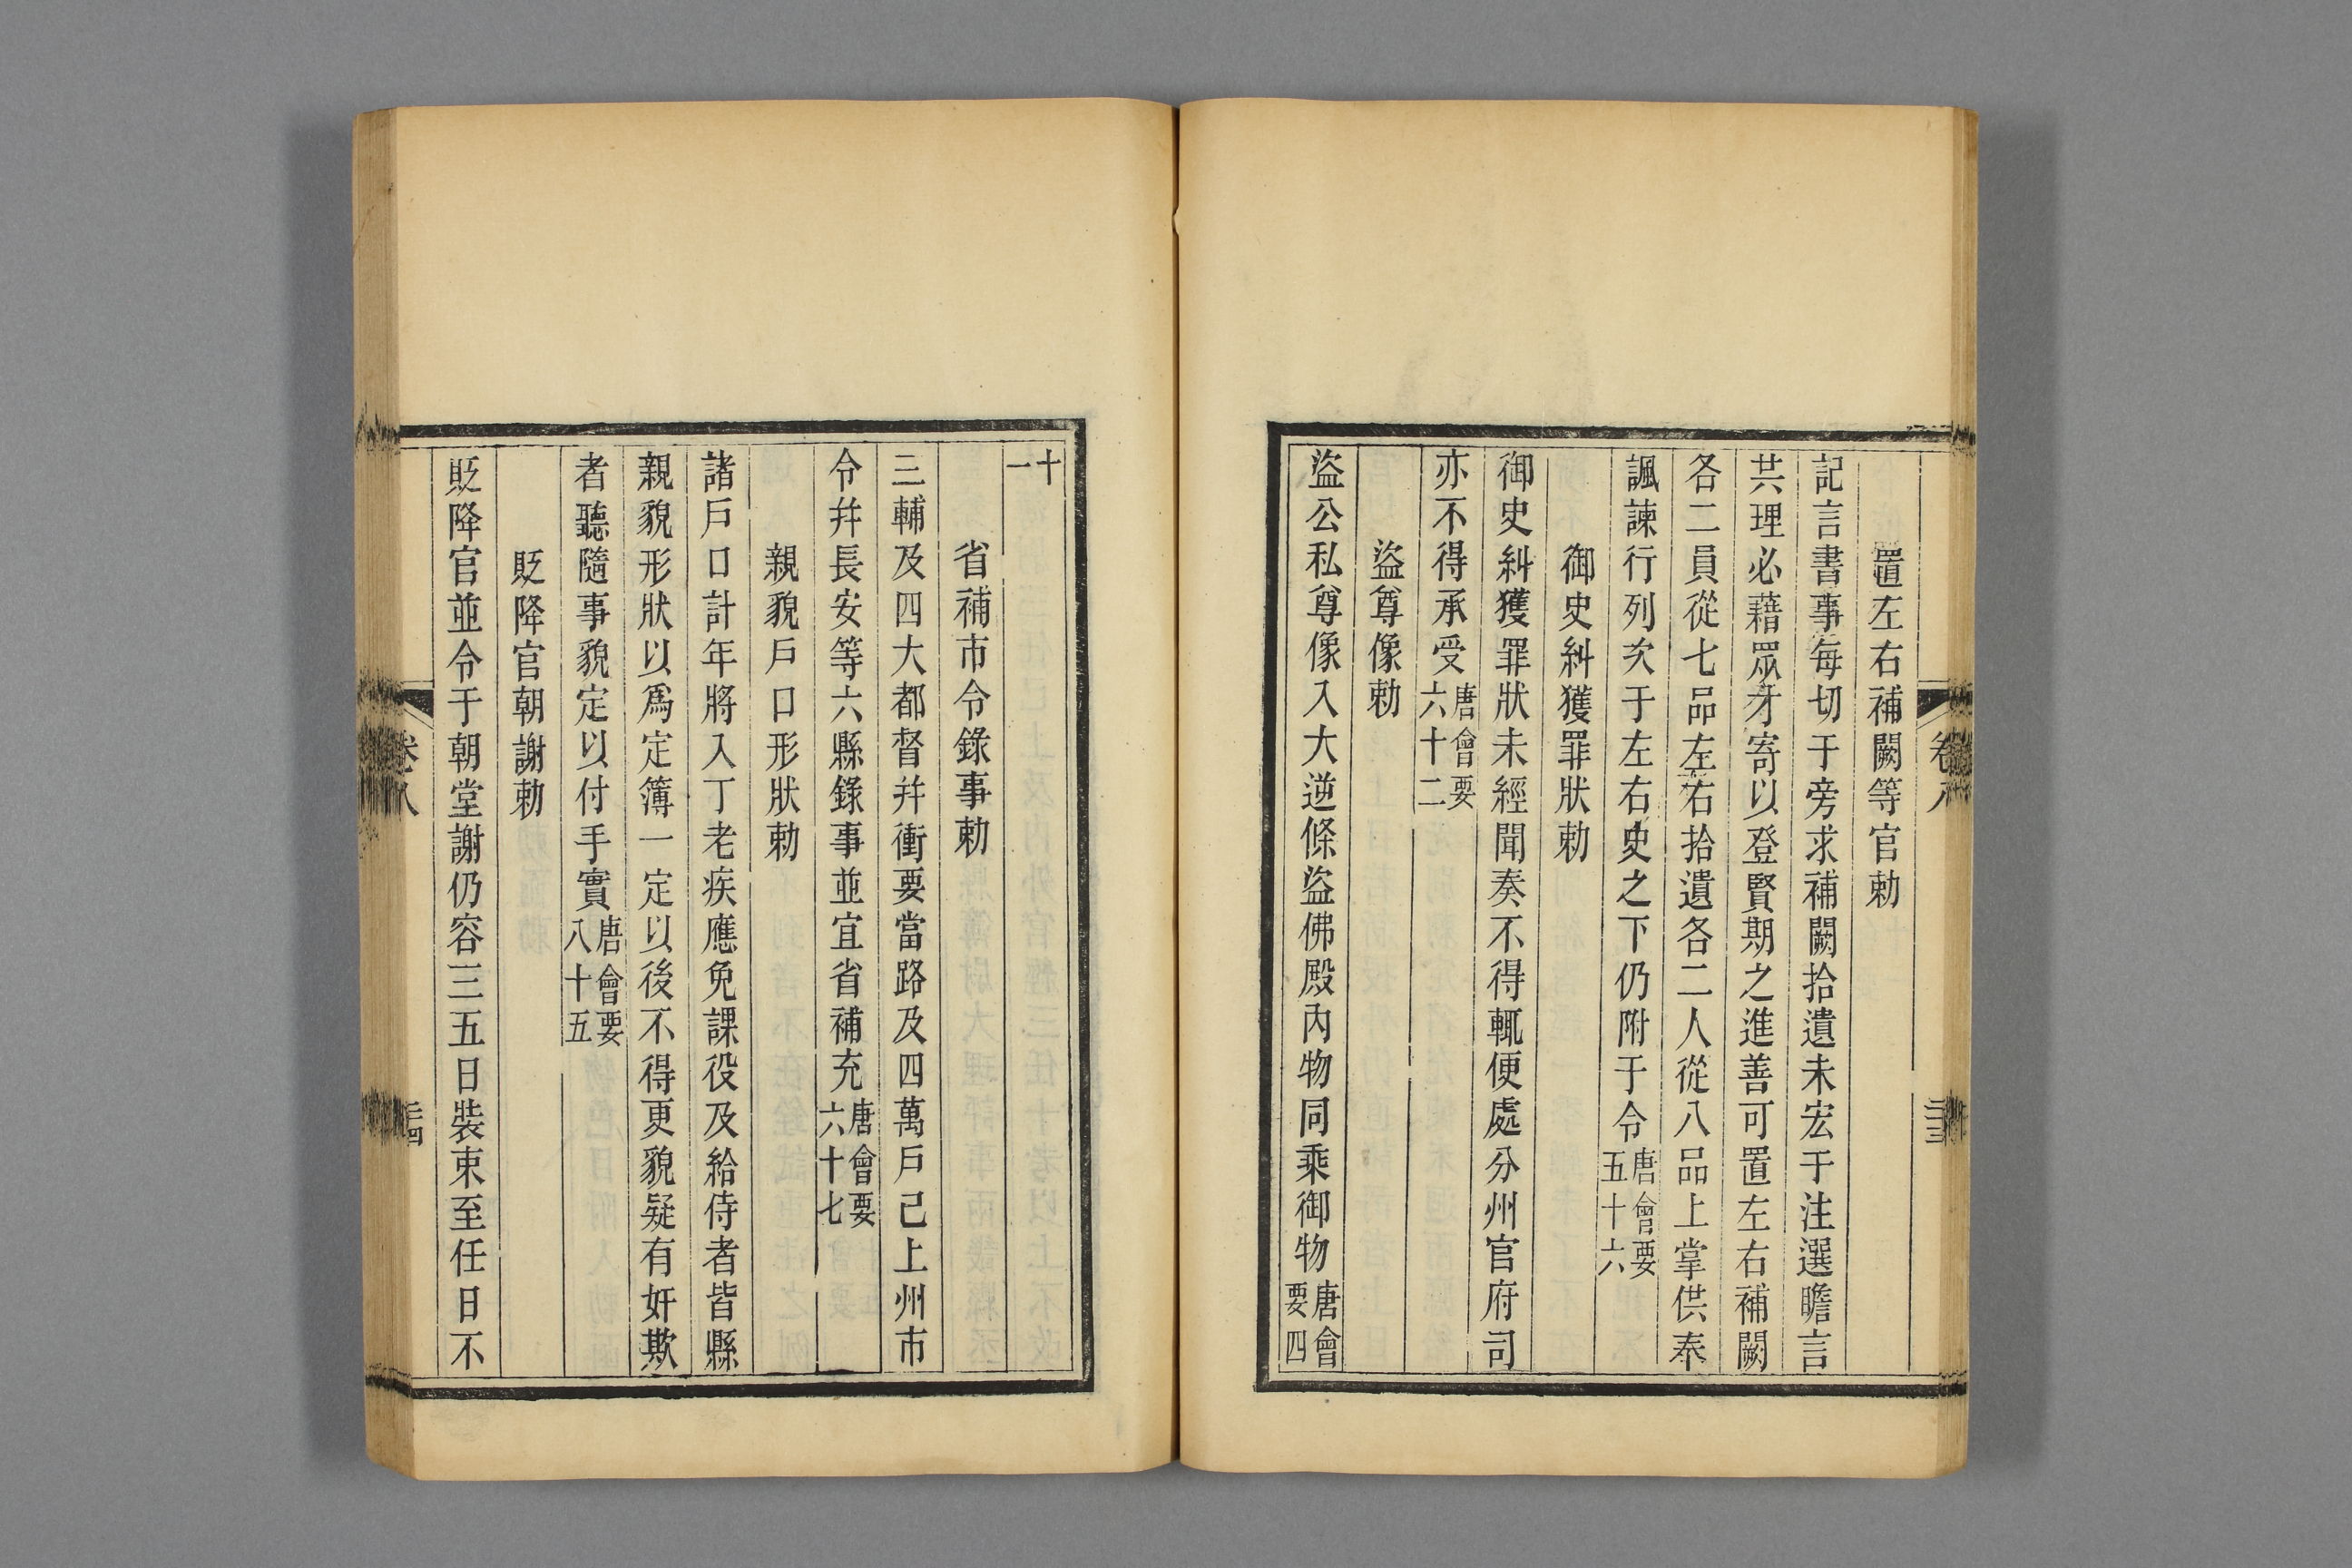 置左右補闕等官勅
記言書事每切于旁求補闕拾遺未宏于注選瞻言
共理必藉眾才寄以登賢期之進善可置左右補闕
各二員從七品左右拾遺各二人從八品上掌供奉
諷諫行列次于左右史之下仍附于令唐會要五十六
御史糾獲罪狀勅
御史糾獲罪狀未經聞奏不得輒便處分州官府司
亦不得承受唐會要六十二
盜尊像勅
盜公私尊像入大逆條盜佛殿內物同乘御物唐會要四
十一
省補市令錄事勅
三輔及四大都督并衝要當路及四萬戶已上州市
令并長安等六縣錄事並宜省補充唐會要六十七
親貌戶口形狀勅
諸戶口計年將入丁老疾應免課役及給侍者皆縣
親貌形狀以爲定簿一定以後不得更貌疑有奸欺
者聽隨事貌定以付手實唐會要八十五
貶降官朝謝勅
貶降官並令于朝堂謝仍容三五日裝束至任日不
卷八